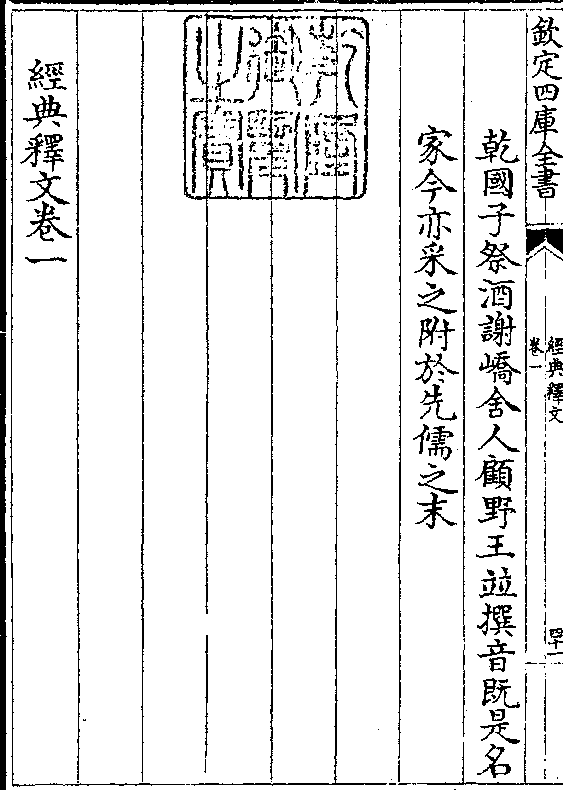 欽定四庫全書
經典釋文
卷一
四十一
乾國子祭酒謝嶠舍人顧野王並撰音既是名
家今亦采之附於先儒之末
乾隆御覽之寶
經典釋文卷一